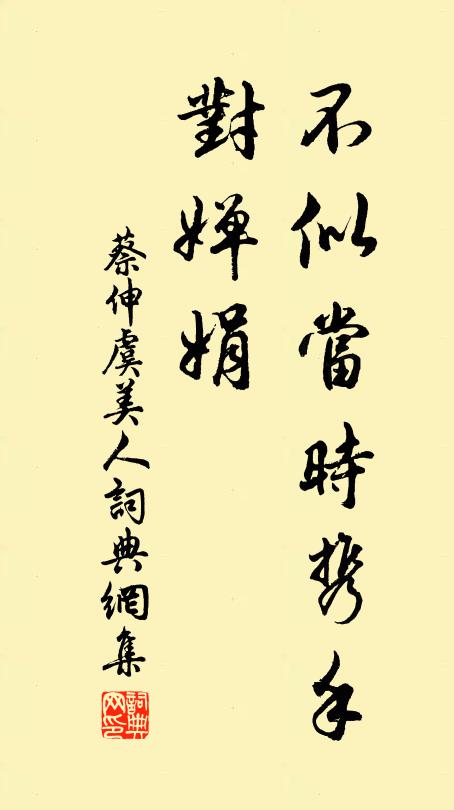 不似當時携手
對嬋娟
蔡伸虞美人詞典網集
詞典網印